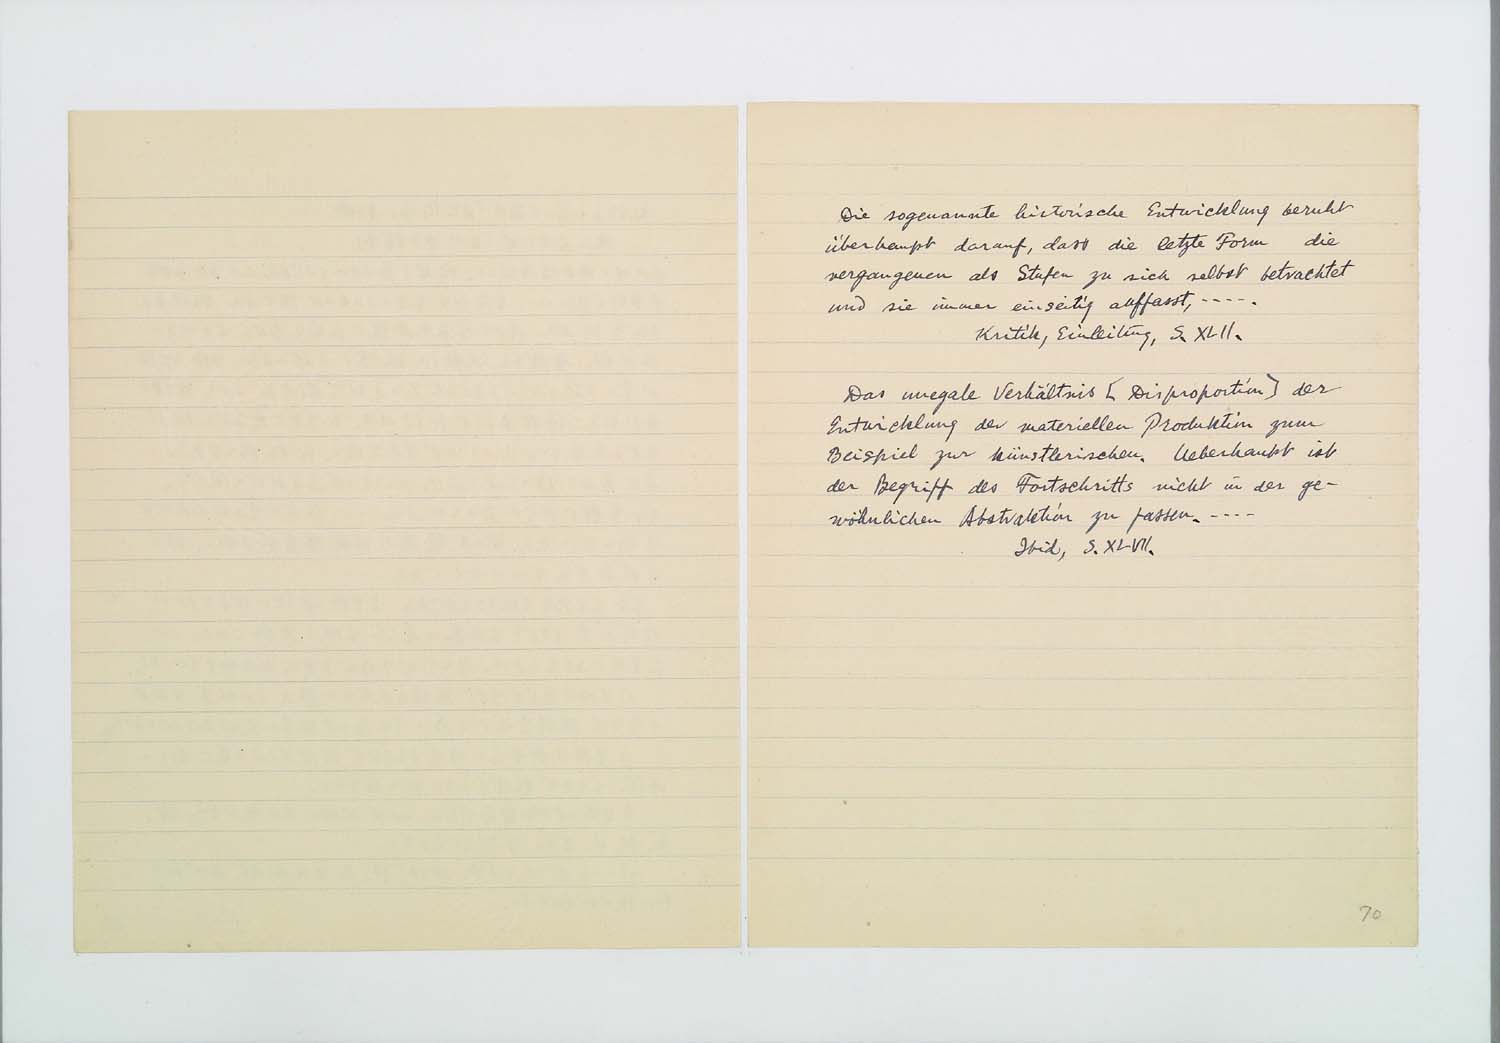 Die sogenannte historische Entwicklung beruht
überhaupt darauf, dass die letzte Form die
vergangenen als Stufen zu sich selbst betrachtet
und sie immer einseitig auffasst, -----.
Kritik, Einleitung, S. XLII.
Das unegale Verhältnis [Disproportion] der
Entwicklung der materiellen Produktion zum
Beispiel zur künstlerischen. Ueberhaupt ist
der Begriff des Fortschritts nicht in der ge-
wöhnlichen Abstraktion zu fassen. ----
Ibid, S. XLVII.
70